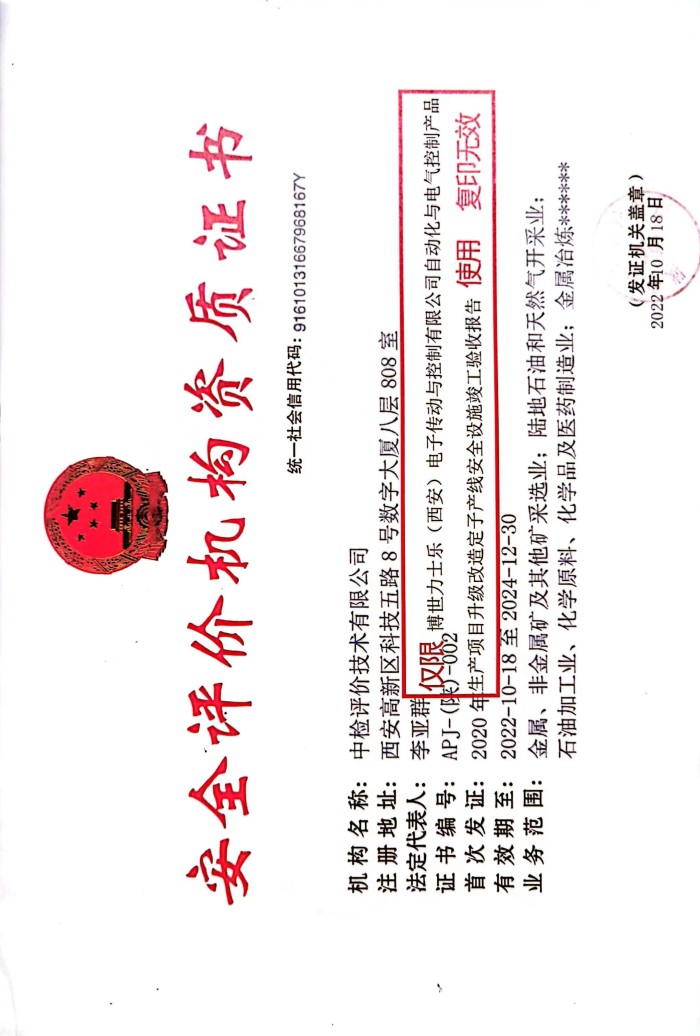 安全评价机构资质证书
统一社会信用代码：91610131667968167Y
机构名称：中检评价技术有限公司
注册地址：西安高新区科技五路8号数字大厦八层808室
法定代表人：李亚群
证书编号：APJ-(陕)-002
首次发证：2020年
有效期至：2022-10-18至2024-12-30
业务范围：金属、非金属矿及其他矿采选业；陆地石油和天然气开采业；
石油加工业、化学原料、化学品及医药制造业；金属冶炼******
仅限 博世力士乐（西安）电子传动与控制有限公司自动化与电气控制产品
生产项目升级改造定子产线安全设施竣工验收报告 使用 复印无效
（发证机关盖章）
2022年10月18日